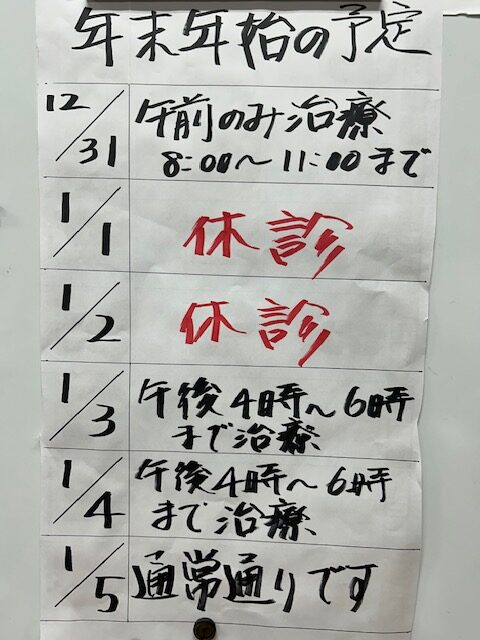 年末年始の予定
12/31 午前のみ治療
8:00〜11:00まで
1/1 休診
1/2 休診
1/3 午後4時〜6時
まで治療
1/4 午後4時〜6時
まで治療
1/5 通常通りです